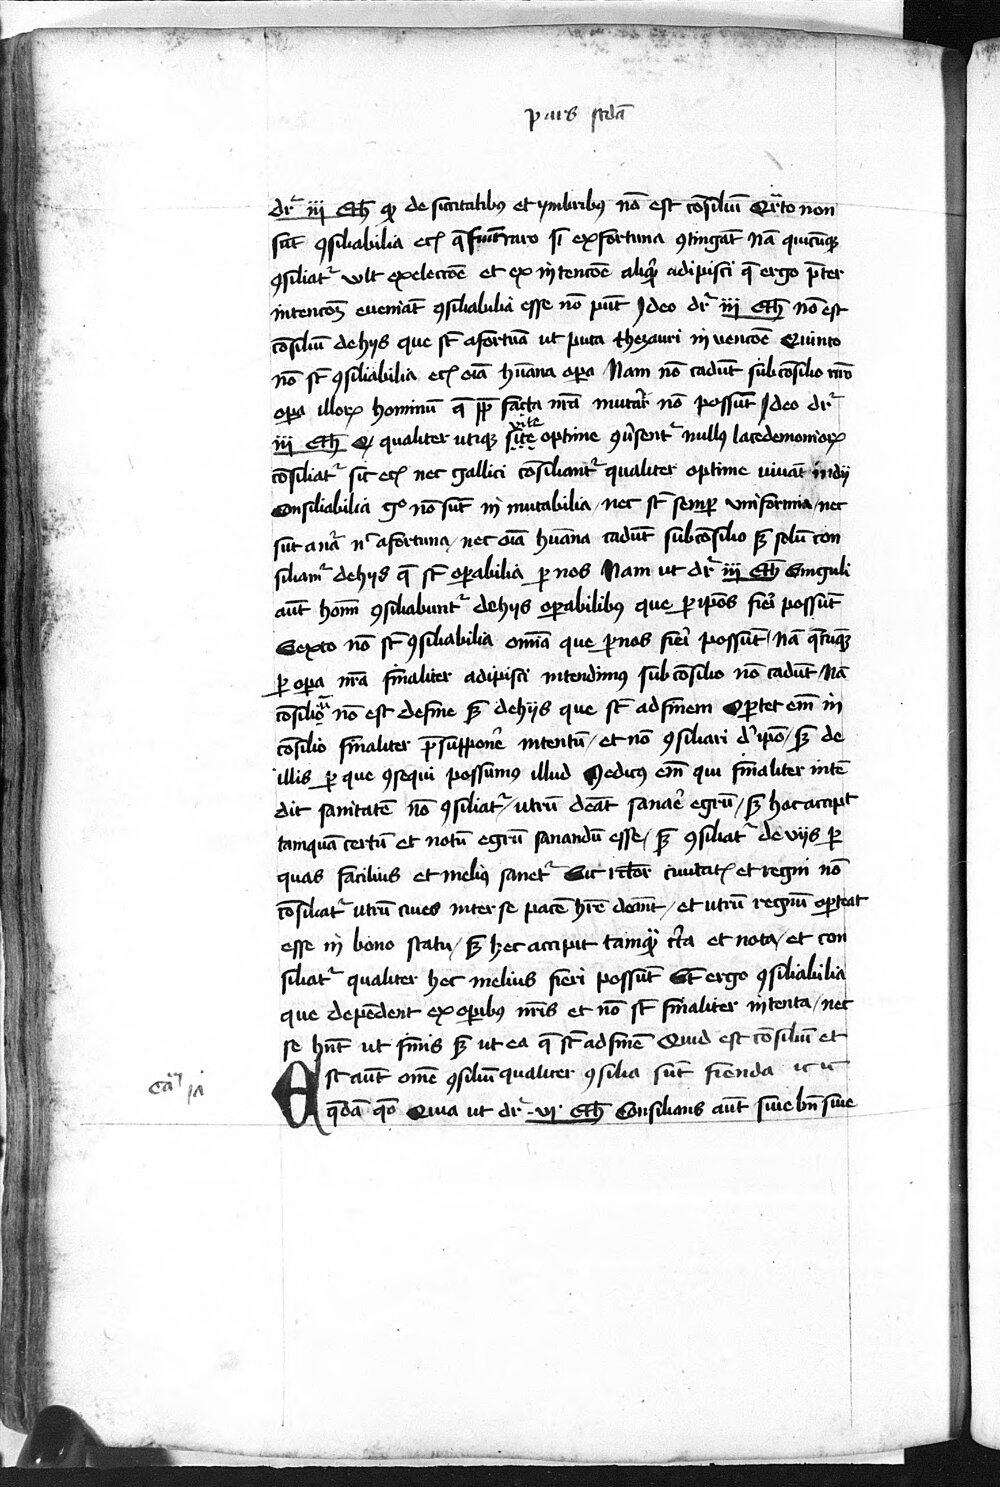 pars scdā
dr̄ iij Eth qͦ de siccitatibꝫ et ymbribꝫ nō est cōsiliū Qrto non
sūt ꝯsiliabilia ecꝫ q̄ fiūt raro sꝫ ex fortuna ꝯtingāt Nā quicūqꝫ
ꝯsiliatʳ vlt ex elecc̄oē et ex intenc̄oē aliqͥ adipisci q̄ ergo p̄ter
intenc̄oꝫ eueniāt ꝯsiliabilia esse nō pn̄t Ideo dr̄ iij Eth nō est
cōsiliū de hijs que st̄ a fortūa ut puta thezauri in venc̄oē Quinto
nō st̄ ꝯsiliabilia ecꝫ oīa hūana opa Nam nō cadūt sub cōsilio nr̄o
opa illoꝝ hominū q̄ ꝑꝑ facta nr̄a mutari nō possūt Ideo dr̄
iij Eth Qͩ qualiter utiqꝫ site optime ꝯūsentʳ nullꝫ lacedemonioꝝ
vite
cōsiliatʳ sic ecꝫ nec gallici cōsiliantʳ qualiter optime viuāt indij
Consiliabilia gͦ nō sūt in mutabilia / nec st̄ semꝑ vniformia / nec
sūt a nā nͨ a fortuna / nec oīa hūana cadūt sub cōsilio sꝫ solū con
siliamʳ de hijs q̄ st̄ oꝑabilia ꝑ nos Nam ut dr̄ iij Eth Singuli
aūt hom̄ ꝯsiliabuntʳ de hijs oꝑabilibꝫ que ꝑ ip̄os fieri possūt
Sexto nō st̄ ꝯsiliabilia omīa que ꝑ nos fieri possūt / Nā q̄cūqꝫ
ꝑ opa nr̄a fīnaliter adipisci intendimꝫ sub cōsilio nō cadūt / Nā
cōsilio nō est de fine sꝫ de hijs que st̄ ad finem Oportet em̄ in
cōsilio fīnaliter p̄supponēe intentū / et nō ꝯsiliari dͤ ip̄o / sꝫ de
illis ꝑ que ꝯsequi possumus illud Medicꝫ em̄ qui fīnaliter intē
dit sanitatē nō ꝯsiliatʳ / utrū debeat sanaēe egrū / sꝫ hoc accipt
tamquā certū et notū egrū sanandū esse / sꝫ ꝯsiliatʳ de viis ꝑ
quas facilius et melꝫ sanetʳ Sic rc̄tor ciuitatꝫ et regni nō
cōsiliatʳ utrū ciues inter se pacē hr̄e debeāt / et utrū regnū oporteat
esse in bono statu / sꝫ hec accipit tamqͣ c̄ta et nota / et con
siliatʳ qualiter hec melius fieri possūt St̄ ergo ꝯsiliabilia
que depēdent ex oꝑibꝫ nr̄is et nō st̄ fīnaliter intenta / nec
se hn̄t ut fīnis sꝫ ut ea q̄ st̄ ad finē Quid est cōsiliū et
Est aūt omē ꝯsiliū qualiter ꝯsilia sūt fienda
q̄dā qͦ Quia ut dr̄ vi Eth Consilians aūt siue bn̄ siue